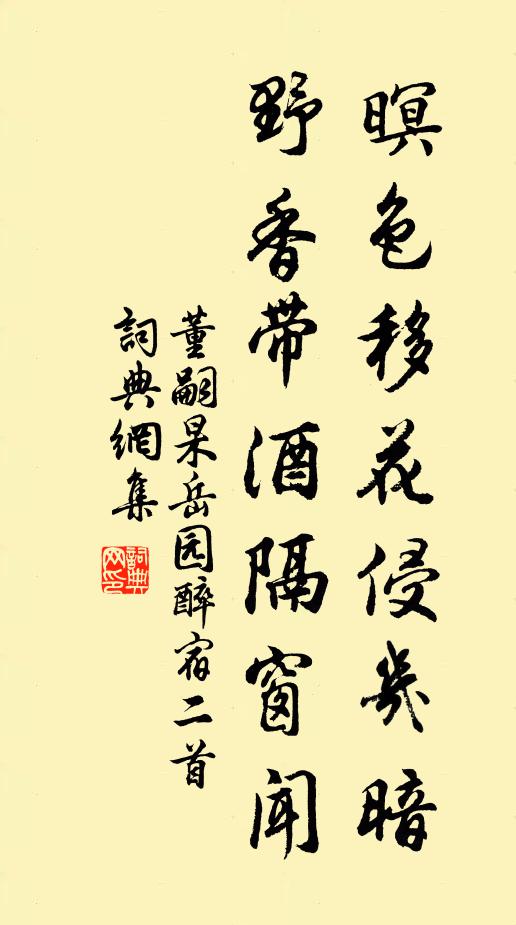 暝色移花侵几暗
野香带酒隔窗闻
董嗣杲岳园醉宿二首
词典網集
詞典网印